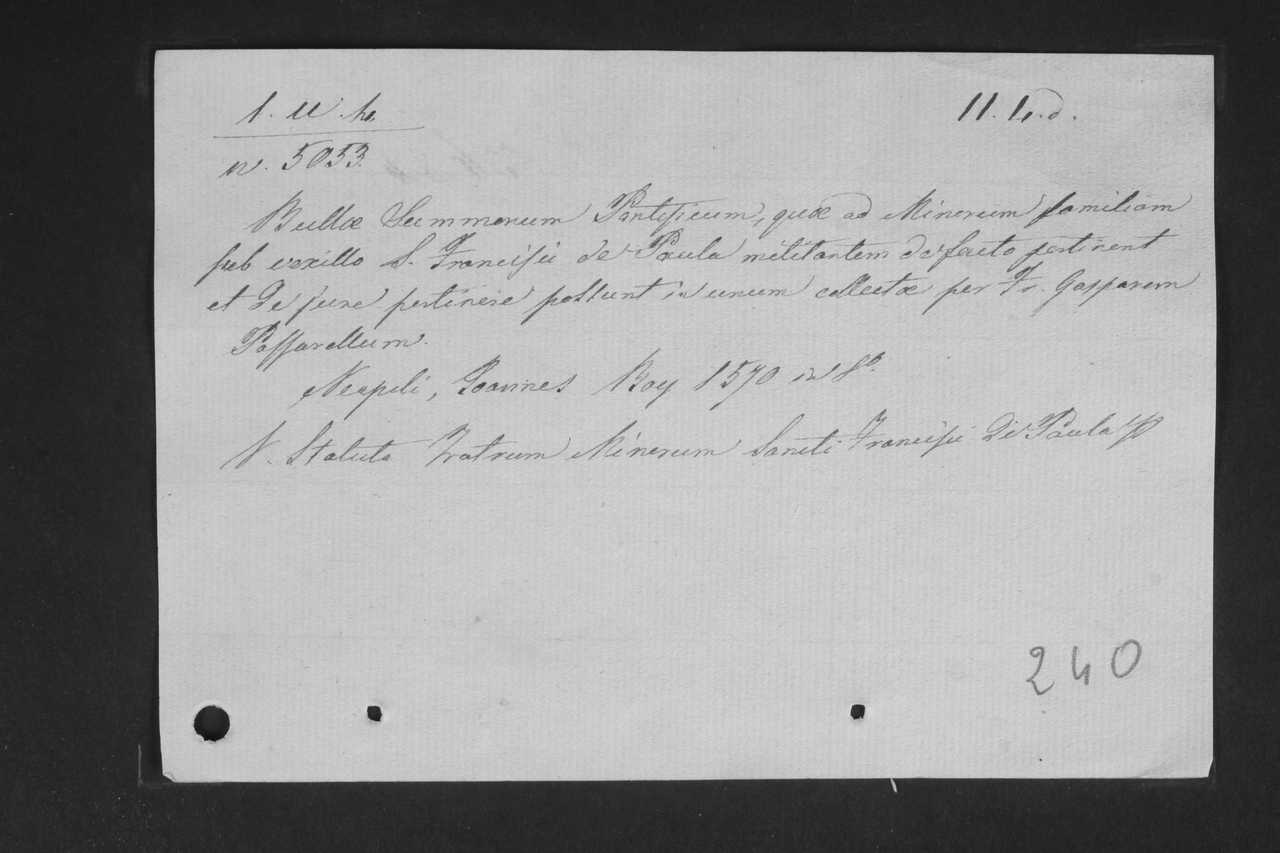 1. u. h.
11. 4. d.
n. 5053.
Bullae Summorum Pontificum, quae ad Minorum familiam
sub vexillo S. Francisci de Paula militantem de facto pertinent
et de jure pertinere possunt in unum collectae per Fr. Gasparem
Passarellum.
Neapoli, Joannes Boy 1570 in 8º.
V. Statuta Fratrum Minorum Sancti Francisci de Paula
240